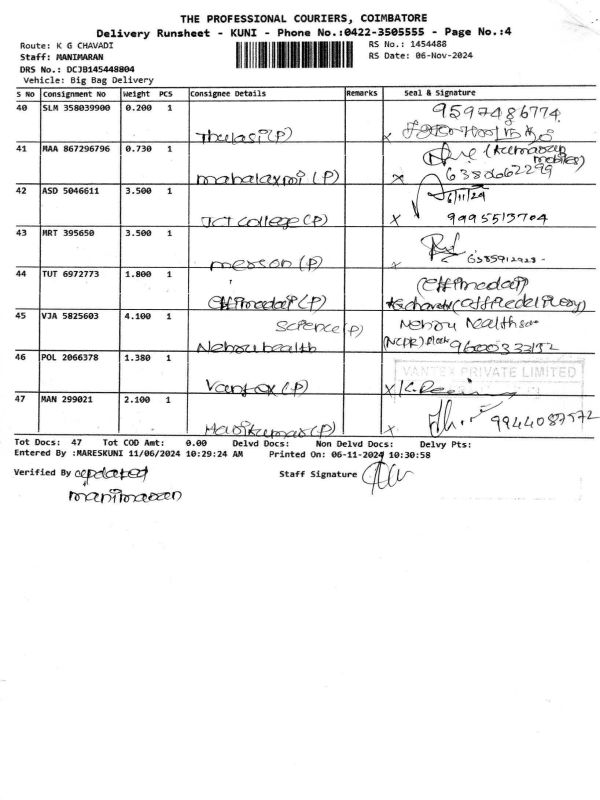 THE PROFESSIONAL COURIERS, COIMBATORE
Delivery Runsheet - KUNI - Phone No.:0422-3505555 - Page No.:4
Route: K G CHAVADI RS No.: 1454488
Staff: MANIMARAN RS Date: 06-Nov-2024
DRS No.: DCJB145448804
Vehicle: Big Bag Delivery
S No Consignment No Weight PCS Consignee Details Remarks Seal & Signature
40 SLM 358039900 0.200 1 9597486774
Thulasi(P) x
41 MAA 867296796 0.730 1
mahalaxmi (P) x 6380662299
42 ASD 5046611 3.500 1 6/11/24
JCT College(P) x 9995513704
43 MRT 395650 3.500 1
merson(P) x
44 TUT 6972773 1.800 1
(P)
45 VJA 5825603 4.100 1 Science(P) Nehru health
Nehru health 9600333152
46 POL 2066378 1.380 1 VANTEX PRIVATE LIMITED
Vantex(P) x
47 MAN 299021 2.100 1 9944087572
Manikumar(P) x
Tot Docs: 47 Tot COD Amt: 0.00 Delvd Docs: Non Delvd Docs: Delvy Pts:
Entered By :MARESKUNI 11/06/2024 10:29:24 AM Printed On: 06-11-2024 10:30:58
Verified By updated Staff Signature
manimaran